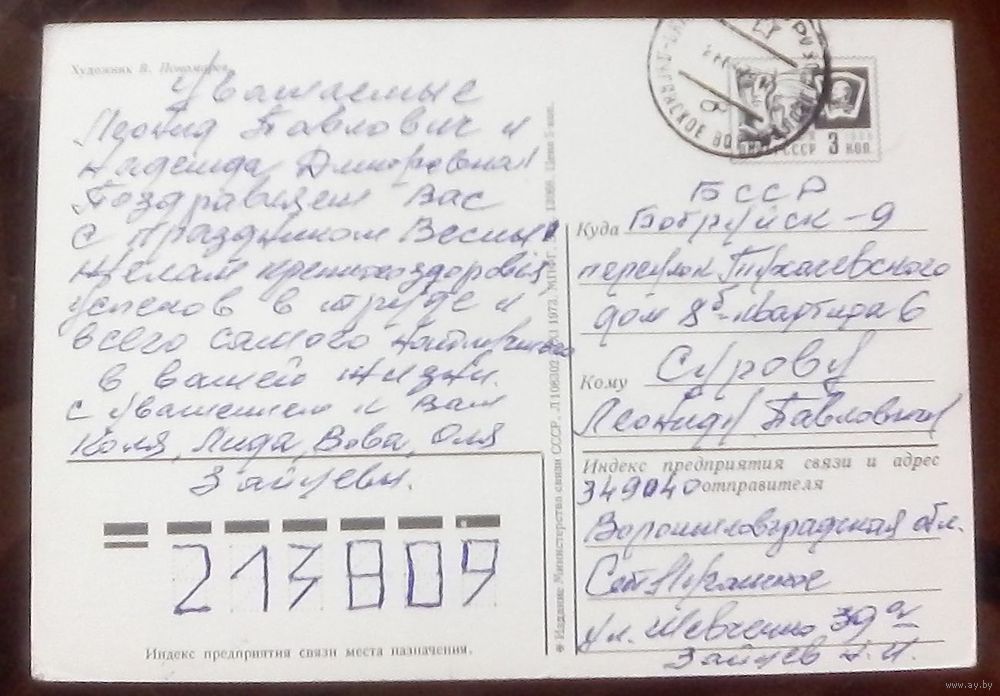 Художник В. Пономарев
Уважаемые
Леонид Павлович и
Надежда Дмитровна!
Поздравляем Вас
с праздником Весны!
Желаем крепкого здоровья,
успехов в труде и
всего самого наилучшего
в вашей жизни.
с уважением к вам
Коля, Лида, Вова, Оля
Зайцевы.
213809
Индекс предприятия связи места назначения.
Издание Министерства связи СССР. 1973. МПФГ. Цена 5 коп.
СССР 3 КОП
БССР
Куда Бобруйск-9
переулок Тухачевского
дом 8б квартира 6
Кому Сурову
Леониду Павловичу
Индекс предприятия связи и адрес
349040 отправителя
Ворошиловградская обл.
ул. Шевченко 39а
Зайцев Н.И.
www.ay.by